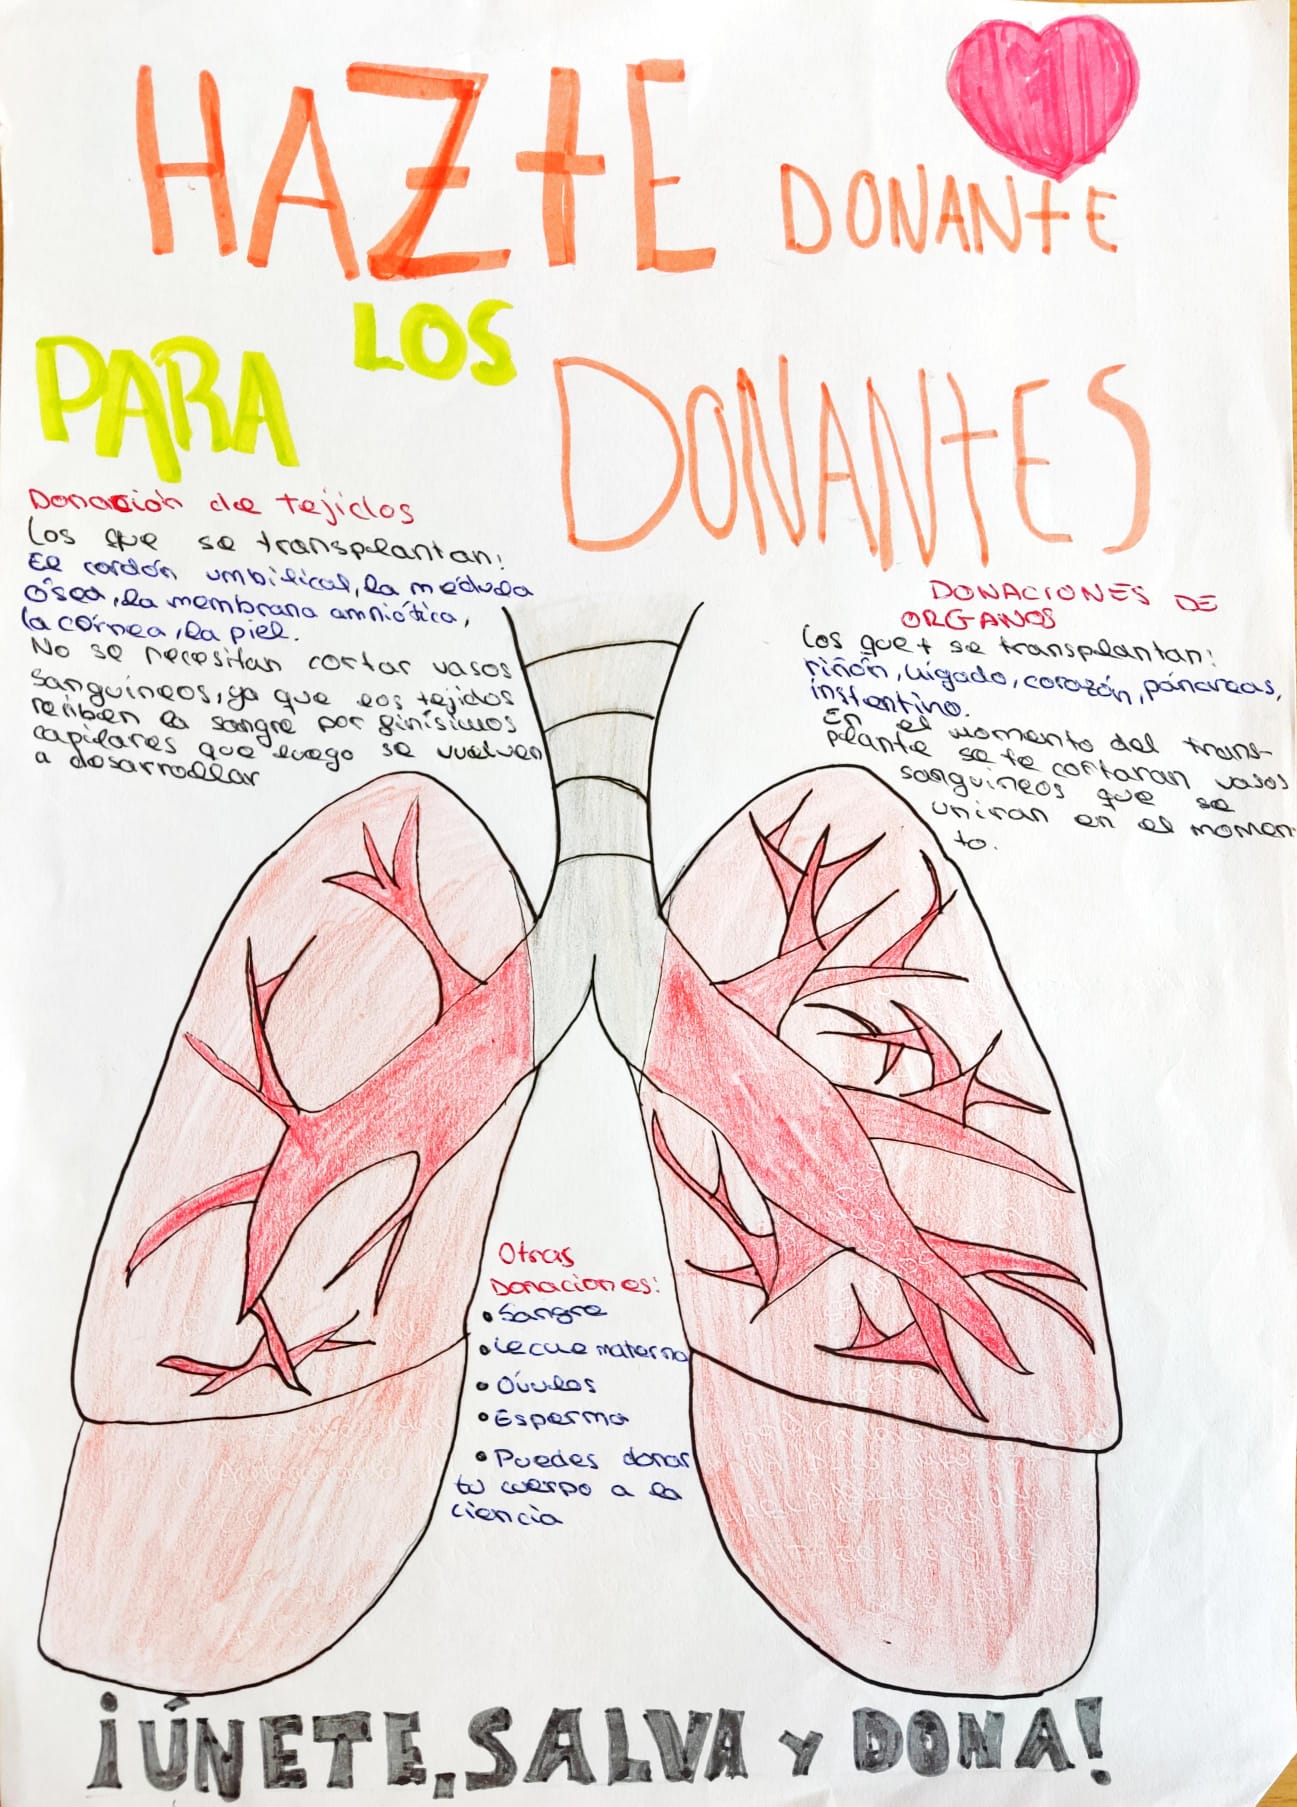 HAZTE DONANTE
PARA LOS DONANTES
Donación de tejidos
Los que se transplantan:
El cordón umbilical, la médula
ósea, la membrana amniótica,
la córnea, la piel.
No se necesitan cortar vasos
sanguíneos, ya que los tejidos
reciben la sangre por finísimos
capilares que luego se vuelven
a desarrollar
DONACIONES DE
ORGANOS
Los que t se transplantan:
riñón, hígado, corazón, páncreas,
instentino.
En el momento del trans-
plante se te cortaran vasos
sanguineos que se
uniran en el momen-
to.
Otras
Donaciones:
• Sangre
• Leche materna
• Óvulos
• Esperma
• Puedes donar
tu cuerpo a la
ciencia
¡ÚNETE, SALVA Y DONA!